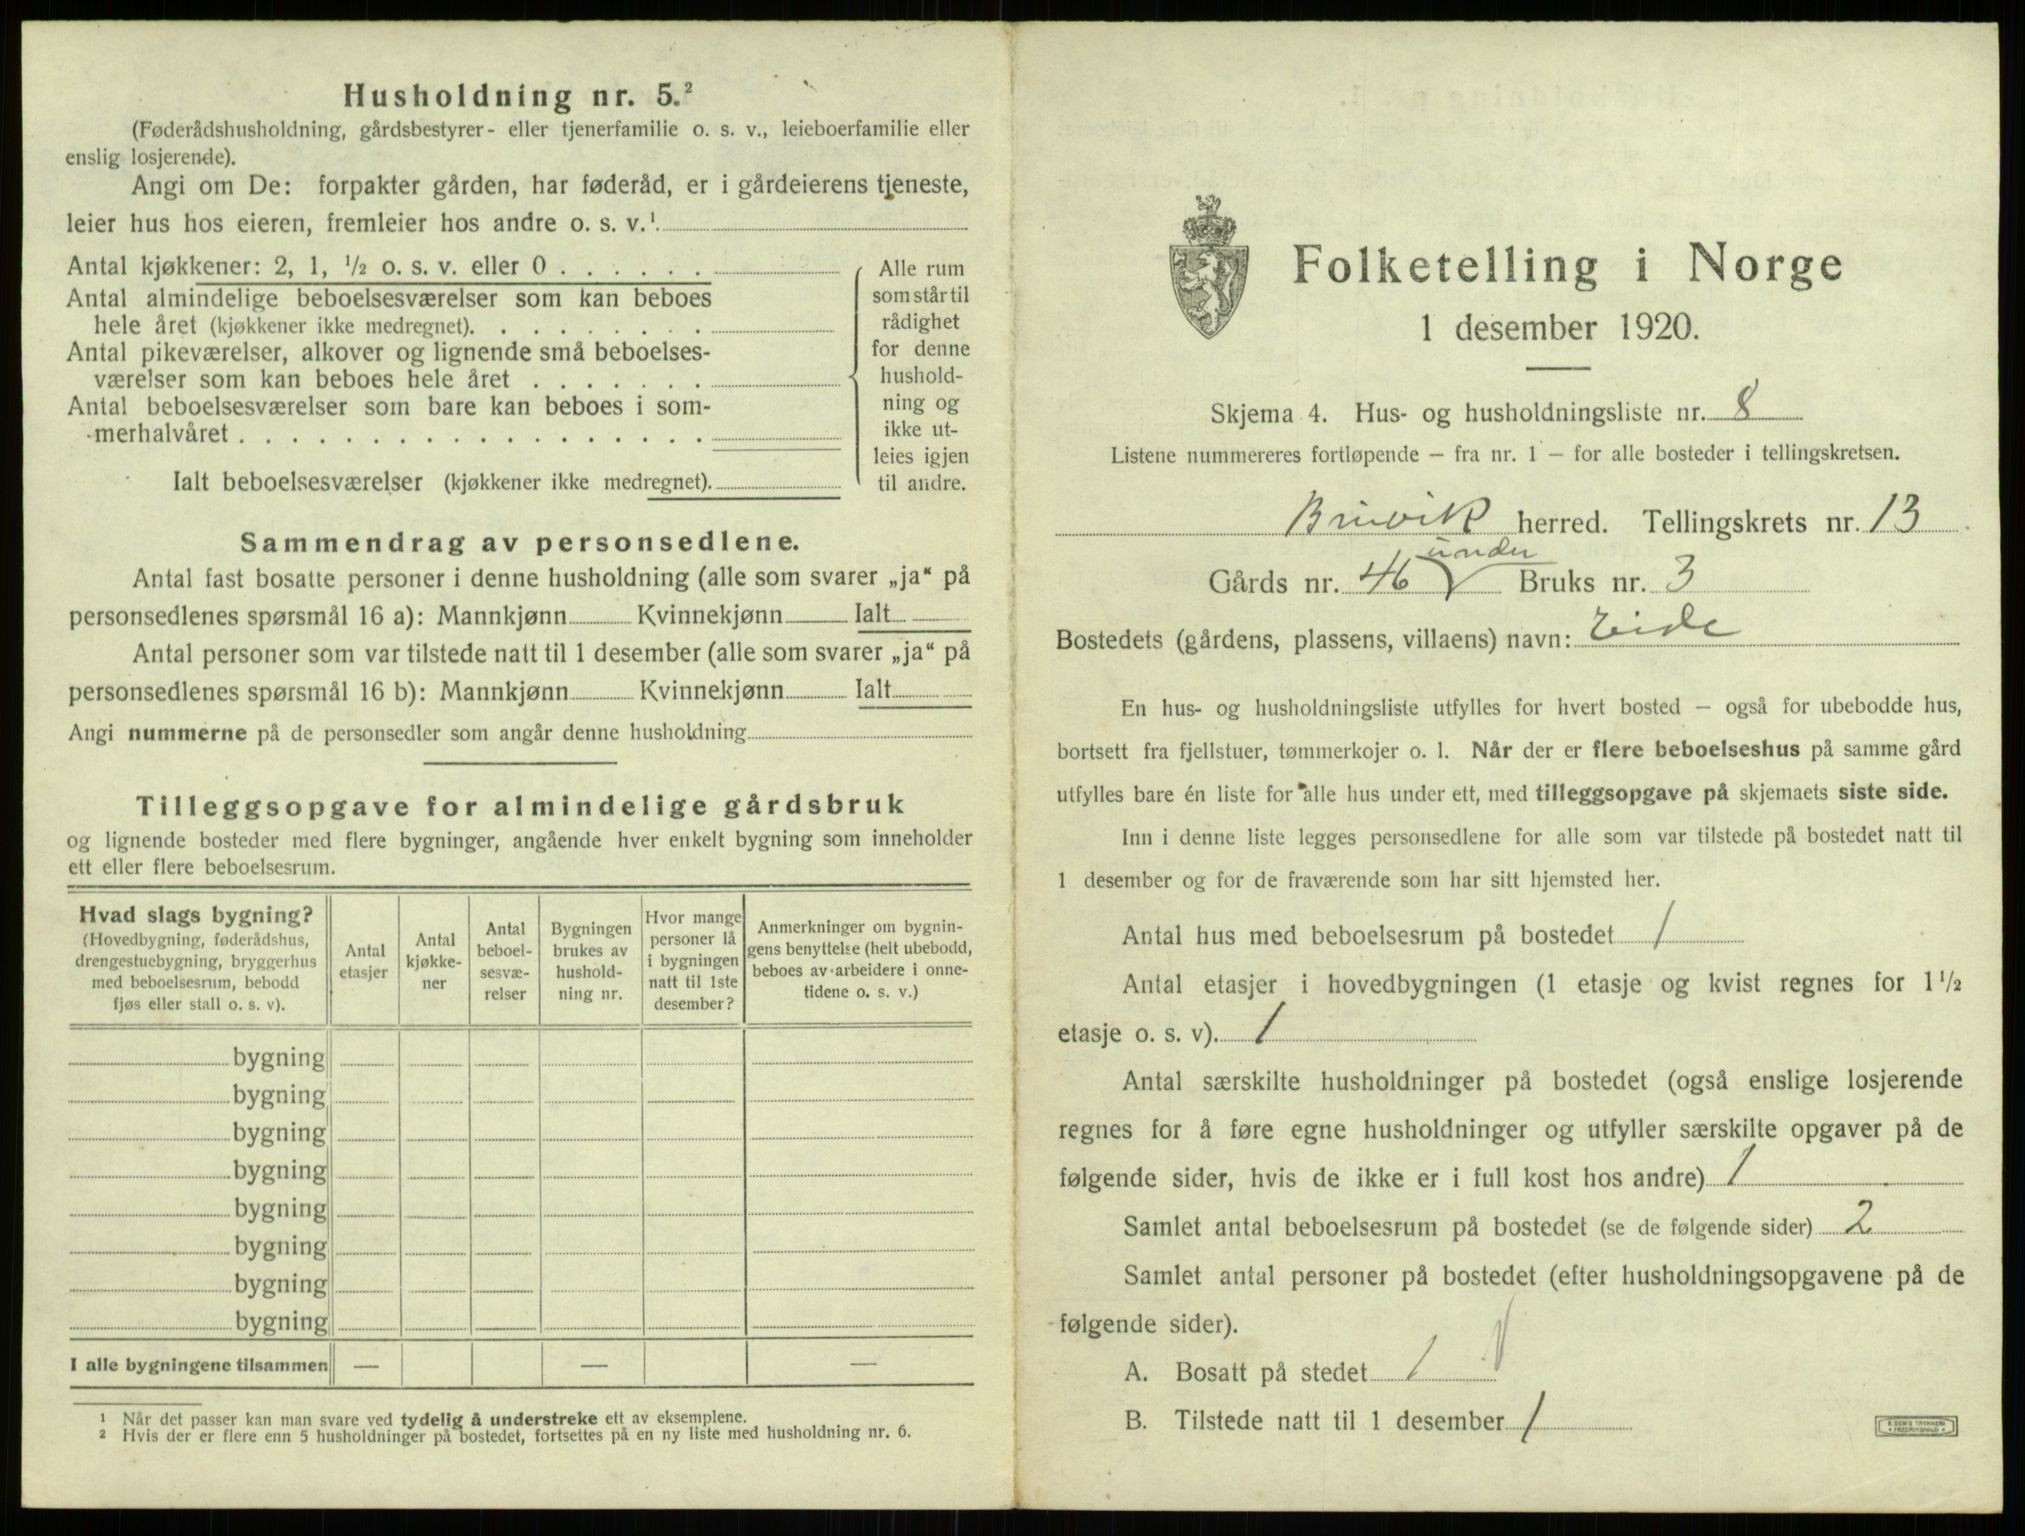 Husholdning nr. 5.²
(Føderådshusholdning, gårdsbestyrer- eller tjenerfamilie o. s. v., leieboerfamilie eller
enslig losjerende).
Angi om De: forpakter gården, har føderåd, er i gårdeierens tjeneste,
leier hus hos eieren, fremleier hos andre o. s. v.¹
Antal kjøkkener: 2, 1, ½ o. s. v. eller 0 . . . . . .
Antal almindelige beboelsesværelser som kan beboes
hele året (kjøkkener ikke medregnet). . . . . . . . .
Antal pikeværelser, alkover og lignende små beboelses-
værelser som kan beboes hele året . . . . . . .
Antal beboelsesværelser som bare kan beboes i som-
merhalvåret . . . . . . . . . . . . . . . . . .
Ialt beboelsesværelser (kjøkkener ikke medregnet).
Alle rum
som står til
rådighet
for denne
hushold-
ning og
ikke ut-
leies igjen
til andre.
Sammendrag av personsedlene.
Antal fast bosatte personer i denne husholdning (alle som svarer „ja“ på
personsedlenes spørsmål 16 a): Mannkjønn Kvinnekjønn Ialt
Antal personer som var tilstede natt til 1 desember (alle som svarer „ja“ på
personsedlenes spørsmål 16 b): Mannkjønn Kvinnekjønn Ialt
Angi nummerne på de personsedler som angår denne husholdning
Tilleggsopgave for almindelige gårdsbruk
og lignende bosteder med flere bygninger, angående hver enkelt bygning som inneholder
ett eller flere beboelsesrum.
Hvad slags bygning?
(Hovedbygning, føderådshus,
drengestuebygning, bryggerhus
med beboelsesrum, bebodd
fjøs eller stall o. s. v).
Antal
etasjer
Antal
kjøkke-
ner
Antal
beboel-
sesvæ-
relser
Bygningen
brukes av
hushold-
ning nr.
Hvor mange
personer lå
i bygningen
natt til 1ste
desember?
Anmerkninger om bygnin-
gens benyttelse (helt ubebodd,
beboes av arbeidere i onne-
tidene o. s. v.)
bygning
bygning
bygning
bygning
bygning
bygning
bygning
bygning
I alle bygningene tilsammen — — —
¹ Når det passer kan man svare ved tydelig å understreke ett av eksemplene.
² Hvis der er flere enn 5 husholdninger på bostedet, fortsettes på en ny liste med husholdning nr. 6.
Folketelling i Norge
1 desember 1920.
Skjema 4. Hus- og husholdningsliste nr. 8
Listene nummereres fortløpende — fra nr. 1 — for alle bosteder i tellingskretsen.
herred. Tellingskrets nr. 13
under
Gårds nr. 46 Bruks nr. 3
Bostedets (gårdens, plassens, villaens) navn: Eide
En hus- og husholdningsliste utfylles for hvert bosted — også for ubebodde hus,
bortsett fra fjellstuer, tømmerkojer o. l. Når der er flere beboelseshus på samme gård
utfylles bare én liste for alle hus under ett, med tilleggsopgave på skjemaets siste side.
Inn i denne liste legges personsedlene for alle som var tilstede på bostedet natt til
1 desember og for de fraværende som har sitt hjemsted her.
Antal hus med beboelsesrum på bostedet 1
Antal etasjer i hovedbygningen (1 etasje og kvist regnes for 1½
etasje o. s. v). 1
Antal særskilte husholdninger på bostedet (også enslige losjerende
regnes for å føre egne husholdninger og utfyller særskilte opgaver på de
følgende sider, hvis de ikke er i full kost hos andre) 1
Samlet antal beboelsesrum på bostedet (se de følgende sider) 2
Samlet antal personer på bostedet (efter husholdningsopgavene på de
følgende sider).
A. Bosatt på stedet 1
B. Tilstede natt til 1 desember 1